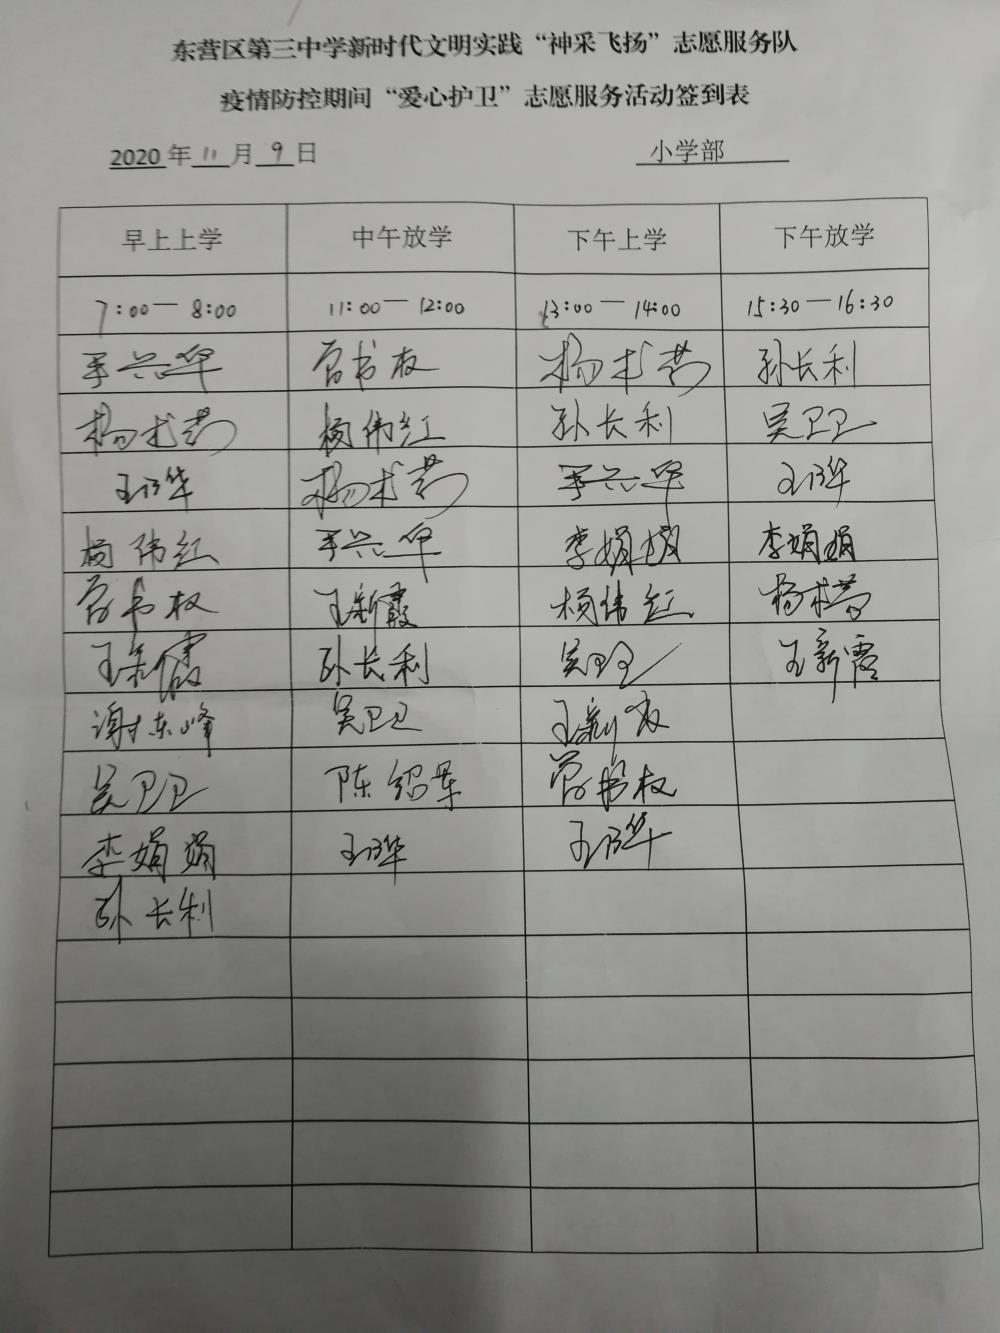 东营区第三中学新时代文明实践“神采飞扬”志愿服务队
疫情防控期间“爱心护卫”志愿服务活动签到表
2020年11月9日 小学部
早上上学 中午放学 下午上学 下午放学
7:00—8:00 11:00—12:00 13:00—14:00 15:30—16:30
李兴华 书权 杨术 孙长利
杨术 杨伟红 孙长利 吴卫卫
王乃华 杨术 李兴华 王乃华
杨伟红 李兴华 李娟娟 李娟娟
书权 王新霞 杨伟红 杨术
王新霞 孙长利 吴卫卫 王新霞
谢东峰 吴卫卫 王新霞
吴卫卫 陈绍军 书权
李娟娟 王乃华 王乃华
孙长利